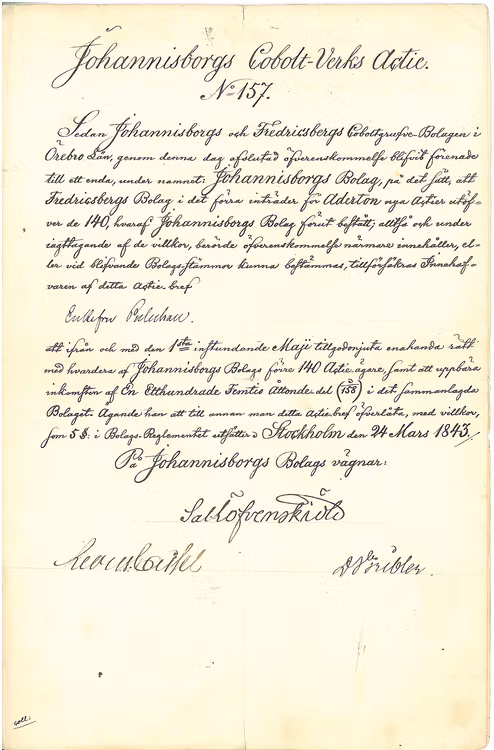 Johannisborgs Cobolt-Verks Actie.
No 157.
Sedan Johannisborgs och Fredricsbergs Coboltgrufve-Bolagen i
Örebro Län, genom denna dag afslutad öfverenskommelse blifvit förenade
till ett enda, under namnet: Johannisborgs Bolag, på det sätt, att
Fredricsbergs Bolag i det förra inträder för Aderton nya Actier utöf-
ver de 140, hvaraf Johannisborgs Bolag förut bestått; alltså och under
iagttagande af de villkor, berörde öfverenskommelse närmare innehåller, el-
ler vid blifvande Bolags-stämmor kunna bestämmas, tillförsäkras Innehaf-
varen af detta Actie-bref
Enkefru
att ifrån och med den 1sta instundande Maji tillgodonjuta enahanda rätt
med hvardera af Johannisborgs Bolags förre 140 Actie-ägare, samt att uppbära
inkomsten af En Etthundrade Femtio Åttonde-del (1/158) i det sammanlagda
Bolaget. Ägande han att till annan man detta Actie-bref öfverlåta, med villkor,
som 5 §. i Bolags-Reglementet utsätter. Stockholm den 24 Mars 1843.
På Johannisborgs Bolags vägnar:
Sal. Löfvenskiöld